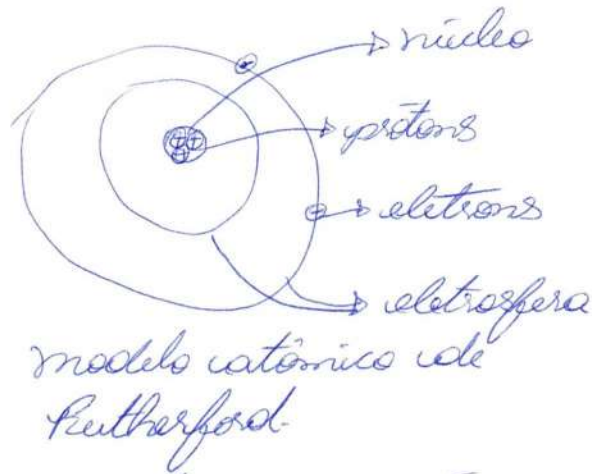 núcleo
prótons
eletrons
eletrosfera
modelo atômico de
Rutherford.